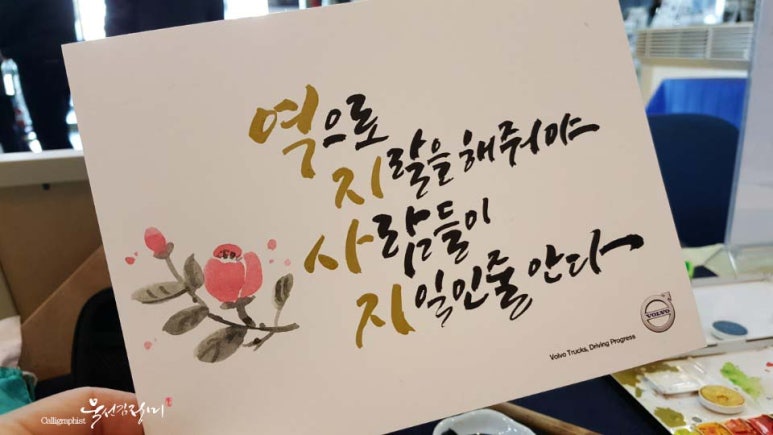 역으로
지랄을 해줘야
사람들이
지 일인줄 안다
VOLVO
Volvo Trucks, Driving Progress
Calligraphist